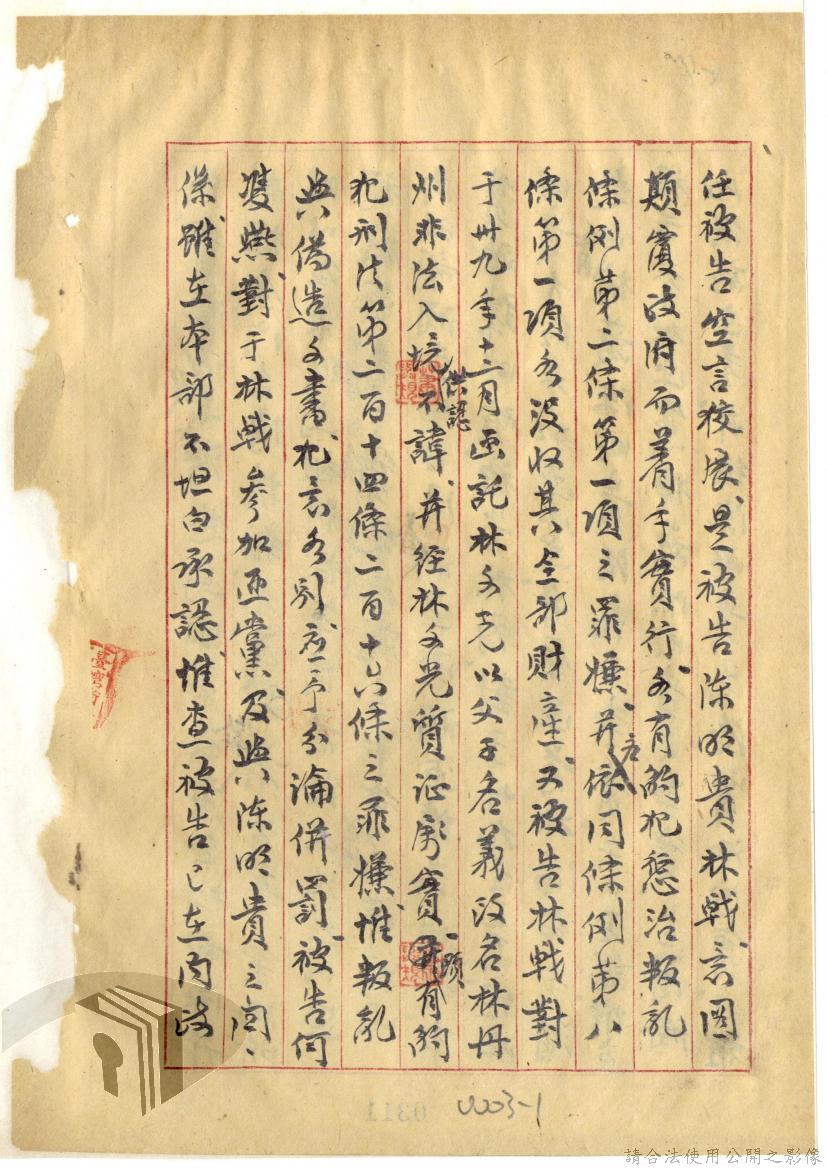 任被告空言狡展、是被告陳明貴林戰、意圖
顛覆政府而着手實行、各有觸犯懲治叛亂
條例第二條第一項之罪嫌、并應依同條例第八
條第一項各沒收其全部財產、又被告林戰對
于卅九年十二月函託林文光以父子名義改名林丹
州非法入境供認不諱、并經林文光質证屬實、顯有觸
犯刑法第二百十四條二百十六條之罪嫌、惟叛亂
與偽造文書、犯意各別、應予分論併罰、被告何
雙燕、對于林戰參加匪黨、及與陳明貴之關、
係雖在本部不坦白承認、惟查被告已在內政
0311
0003-1
請合法使用公開之影像